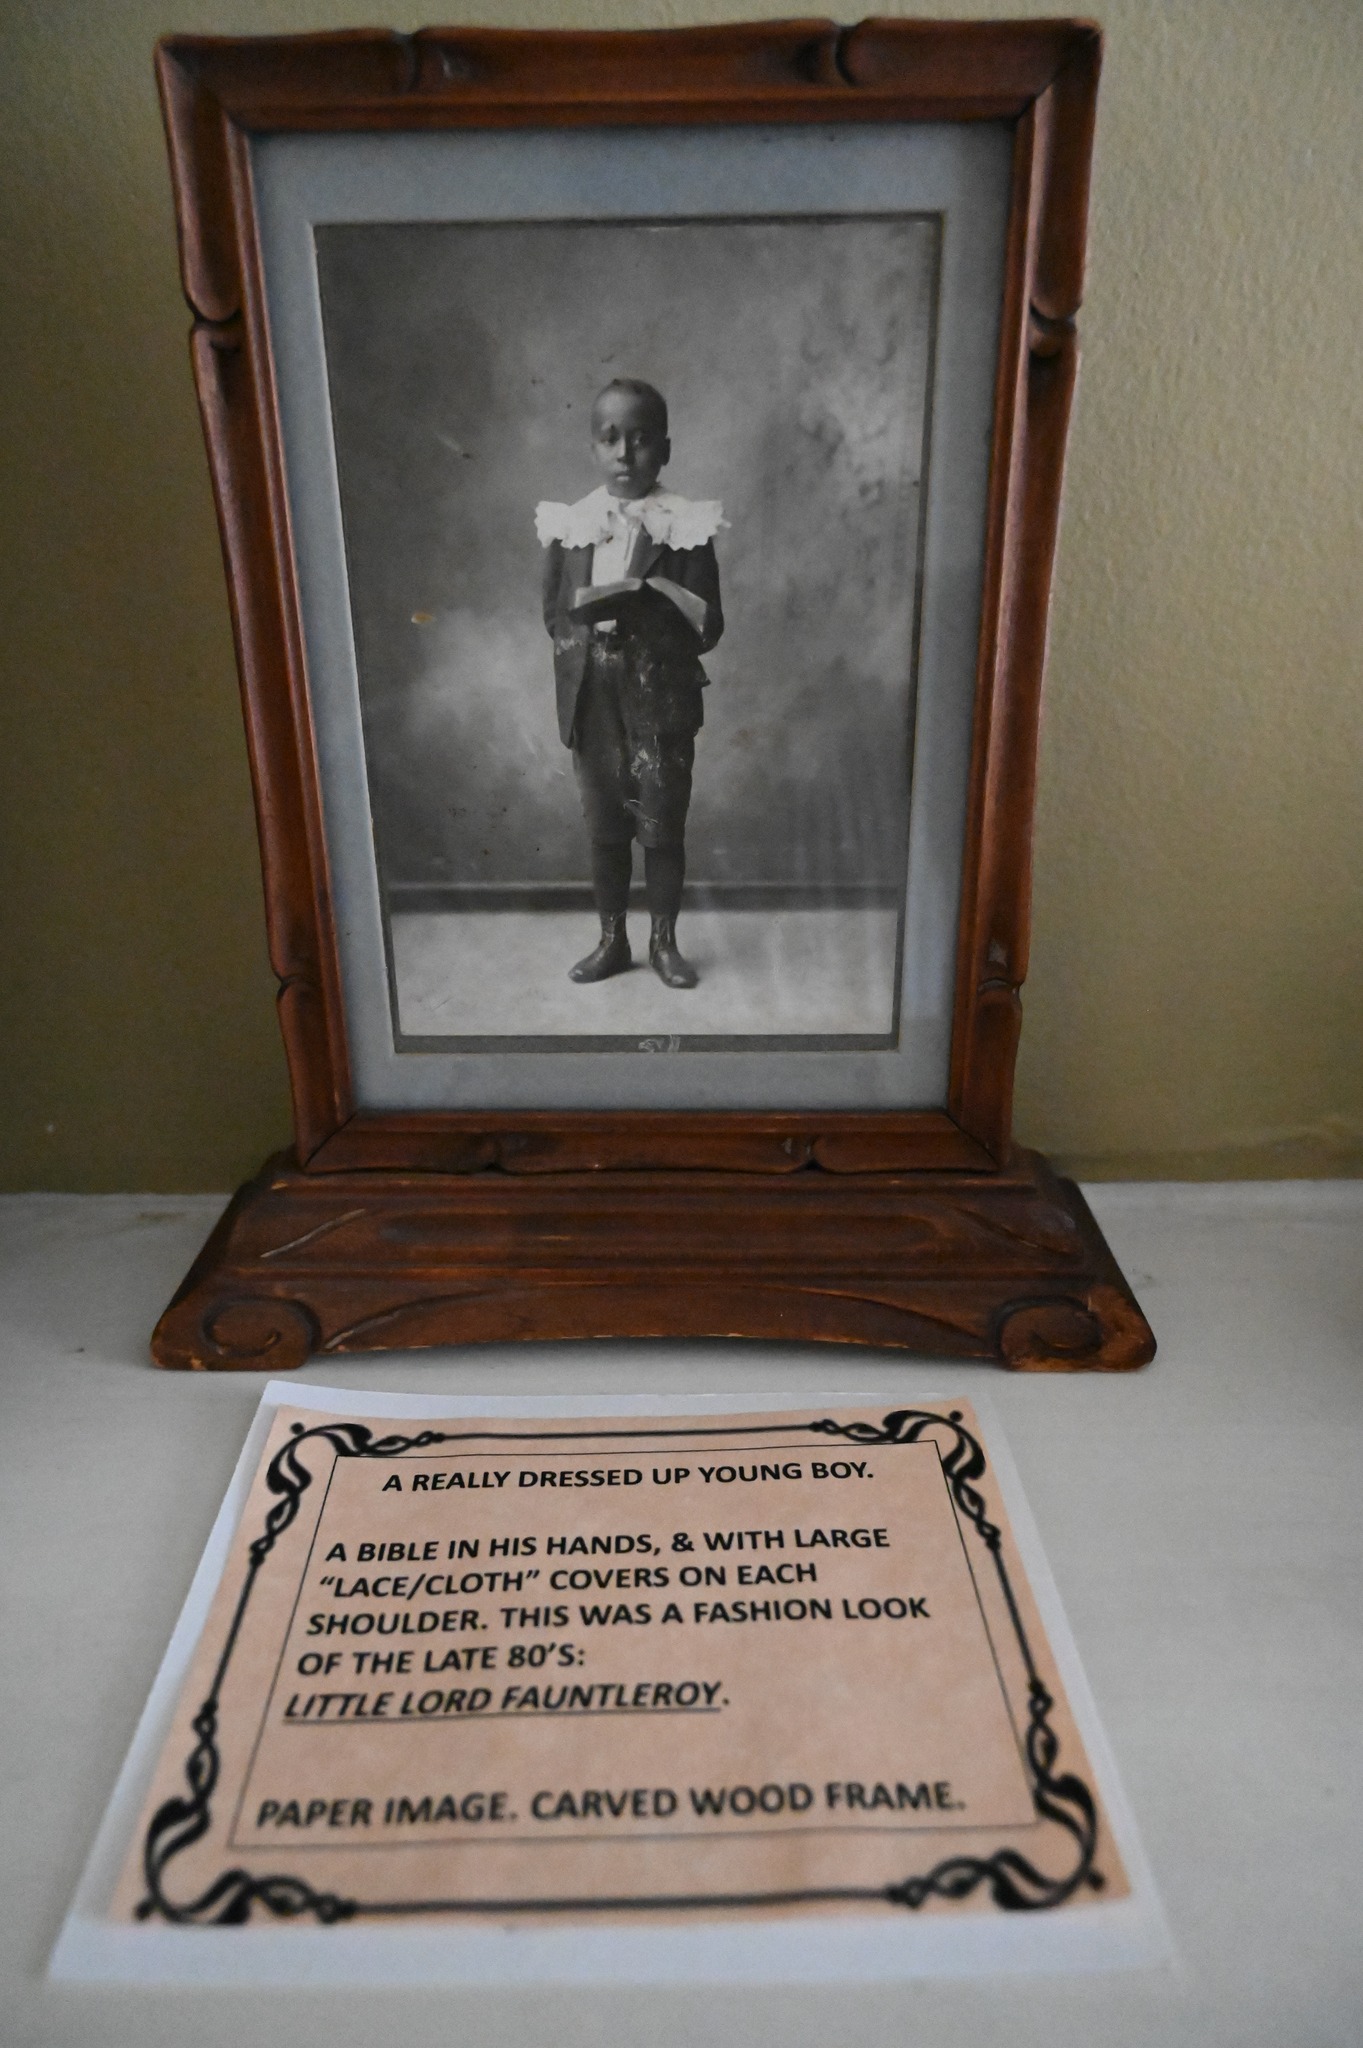 A REALLY DRESSED UP YOUNG BOY.
A BIBLE IN HIS HANDS, & WITH LARGE
“LACE/CLOTH” COVERS ON EACH
SHOULDER. THIS WAS A FASHION LOOK
OF THE LATE 80’S:
LITTLE LORD FAUNTLEROY.
PAPER IMAGE. CARVED WOOD FRAME.